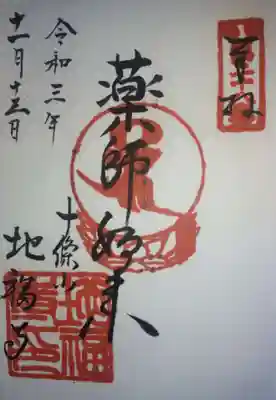 奉拝
薬師如来
十條山
地福寺
令和三年
十一月十三日
地福寺印